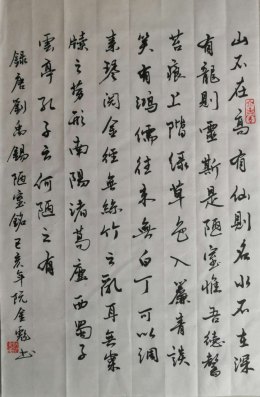 山不在高有仙則名水不在深
有龍則靈斯是陋室惟吾德馨
苔痕上階綠草色入簾青談
笑有鴻儒往來無白丁可以調
素琴閱金經無絲竹之亂耳無案
牘之勞形南陽諸葛廬西蜀子
雲亭孔子云何陋之有
錄唐劉禹錫陋室銘己亥年阮金书